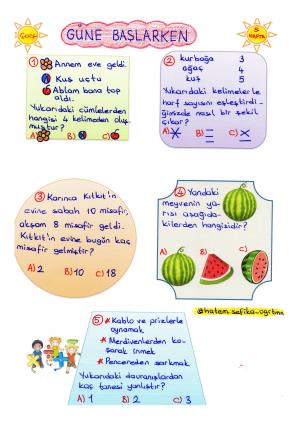 GÜNE BAŞLARKEN
5
HAFTA
1 Annem eve geldi.
Kuş uçtu
Ablam bana top
aldı.
Yukarıdaki cümlelerden
hangisi 4 kelimeden oluş-
muştur?
A) B) C)
2 kurbağa 3
ağaç 4
kuş 5
Yukarıdaki kelimelerle
harf sayısını eşleştirdi-
ğimizde nasıl bir şekil
çıkar?
A) B) C)
3 Karınca Kıtkıt'ın
evine sabah 10 misafir,
akşam 8 misafir geldi.
Kıtkıt'ın evine bugün kaç
misafir gelmiştir?
A) 2 B) 10 C) 18
4 Yandaki
meyvenin ya-
rısı aşağıda-
kilerden hangisidir?
A) B) C)
@hatem_sefika_ogrtmn
5 * Kablo ve prizlerle
oynamak
* Merdivenlerden ko-
şarak inmek
* Pencereden sarkmak
Yukarıdaki davranışlardan
kaç tanesi yanlıştır?
A) 1 B) 2 C) 3